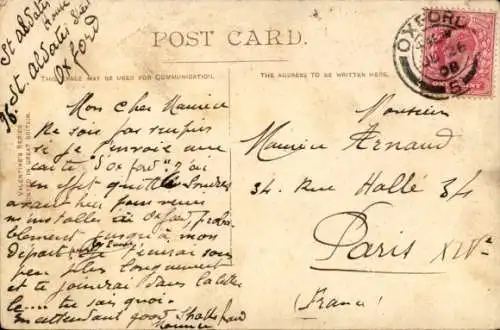 St aldates
House
76. St. aldates Street
Oxford
POST CARD.
THIS SPACE MAY BE USED FOR COMMUNICATION.
THE ADDRESS TO BE WRITTEN HERE.
VALENTINE'S SERIES
OXFORD
JU 26
08
ONE PENNY
Mon cher Maurice
Ne sois pas surpris
si je t'envoie une
carte "d'Oxford" j'ai
en effet quitté Londres
avant hier pour venir
m'installer à Oxford, proba-
blement jusqu'à mon
départ
peu plus longuement
et te joindrai dans la lettre
le.... tu sais quoi.
En attendant good
Maurice
Monsieur
Maurice Arnaud
34. Rue Hallé 34
Paris XIVe
(France)